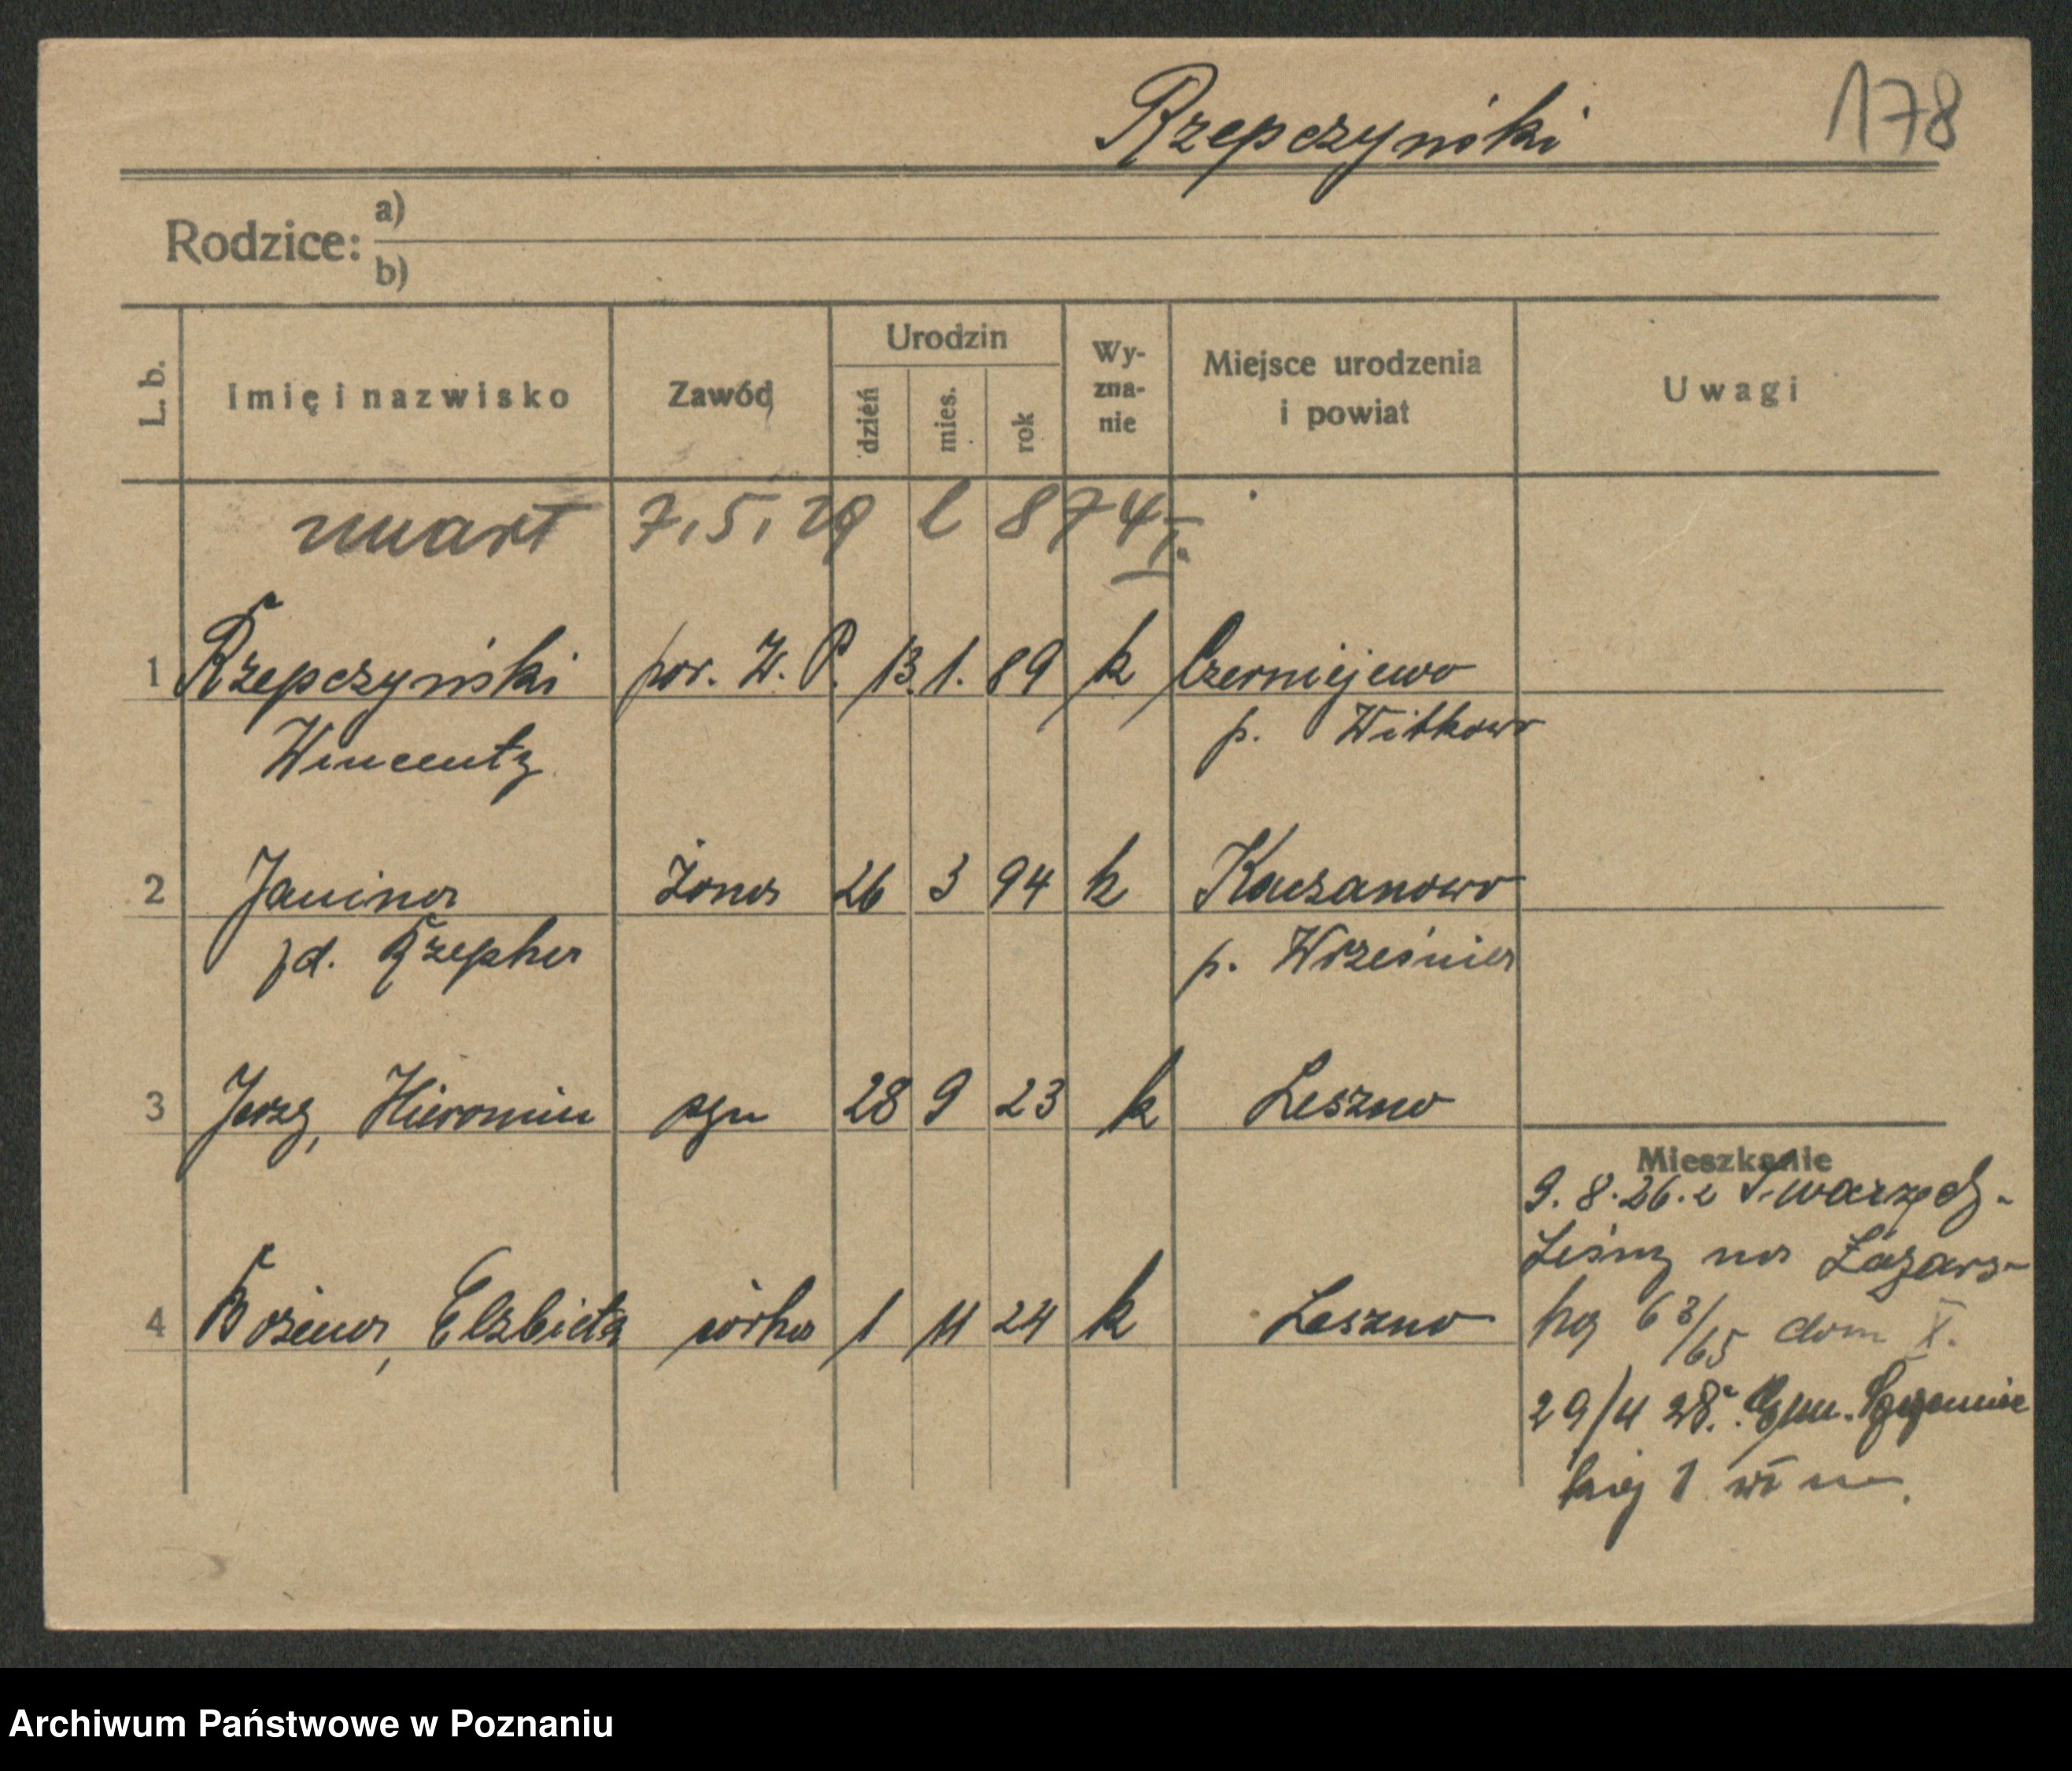 Rzepczyński 178
Rodzice: a)
b)
L. b. Imię i nazwisko Zawód Urodzin dzień mies. rok Wy-zna-nie Miejsce urodzenia i powiat Uwagi
zmarł 7.5.29 l 874 I.
1 Rzepczyński por. W. P. 13. 1. 89 k Czerniejewo
Wincenty p. Witkowo
2 Janina żona 26 3 94 k Kaczanowo
zd. Rzepka p. Września
3 Jerzy, Hieronim syn 28 9 23 k Leszno
Mieszkanie
9. 8. 26. z Swarzędz-
4 Bożena, Elżbieta córka 1 11 24 k Leszno
na Łazars-
ką 63/65 dom X.
29/11 28.
kiej 1
Archiwum Państwowe w Poznaniu